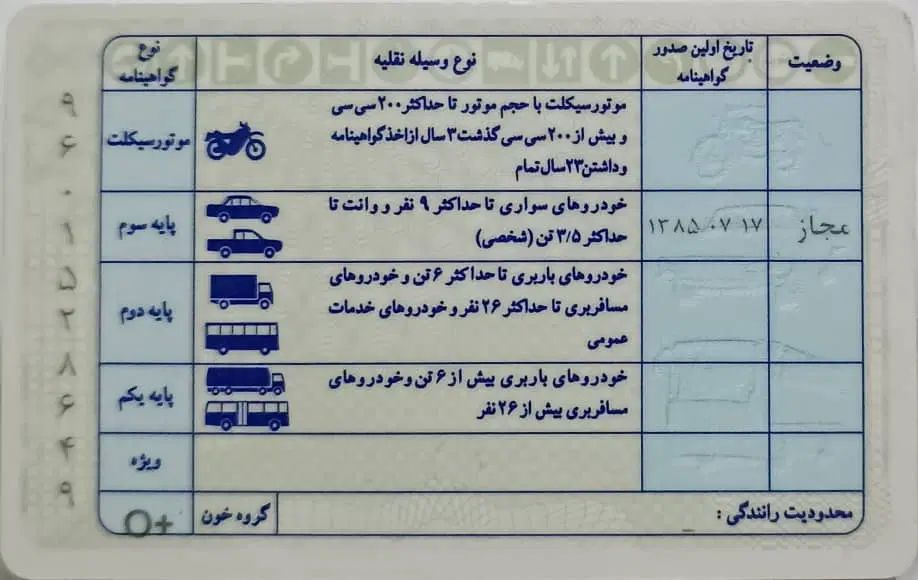 نوع گواهینامه
نوع وسیله نقلیه
تاریخ اولین صدور گواهینامه
وضعیت
موتورسیکلت
موتورسیکلت با حجم موتور تا حداکثر ۲۰۰ سی سی
و بیش از ۲۰۰ سی سی گذشت ۳ سال از اخذ گواهینامه
و داشتن ۲۳ سال تمام
پایه سوم
خودروهای سواری تا حداکثر ۹ نفر و وانت تا
حداکثر ۳/۵ تن (شخصی)
۱۳۸۵ ۰۷ ۱۷
مجاز
پایه دوم
خودروهای باربری تا حداکثر ۶ تن و خودروهای
مسافربری تا حداکثر ۲۶ نفر و خودروهای خدمات
عمومی
پایه یکم
خودروهای باربری بیش از ۶ تن و خودروهای
مسافربری بیش از ۲۶ نفر
ویژه
گروه خون
O+
محدودیت رانندگی :
۹۶۰۱۵۲۸۶۴۹